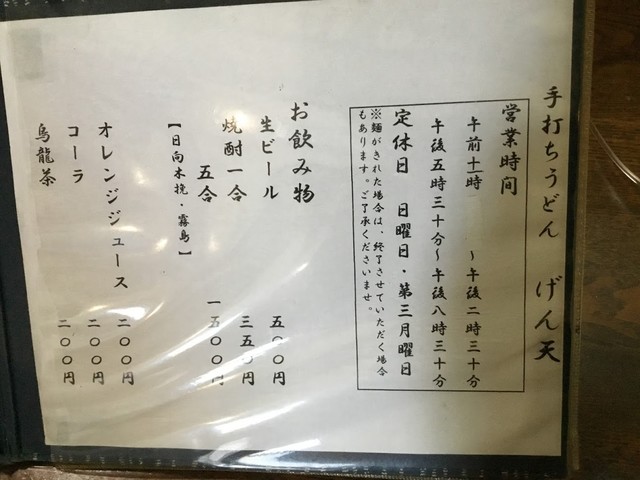 手打ちうどん　げん天
営業時間
午前十一時　～午後二時三十分
午後五時三十分～午後八時三十分
定休日　日曜日・第三月曜日
※麺がきれた場合は、終了させていただく場合
もあります。ご了承くださいませ。
お飲み物
生ビール　五〇〇円
焼酎一合　三五〇円
五合　一五〇〇円
【日向木挽・霧島】
オレンジジュース　二〇〇円
コーラ　二〇〇円
烏龍茶　二〇〇円